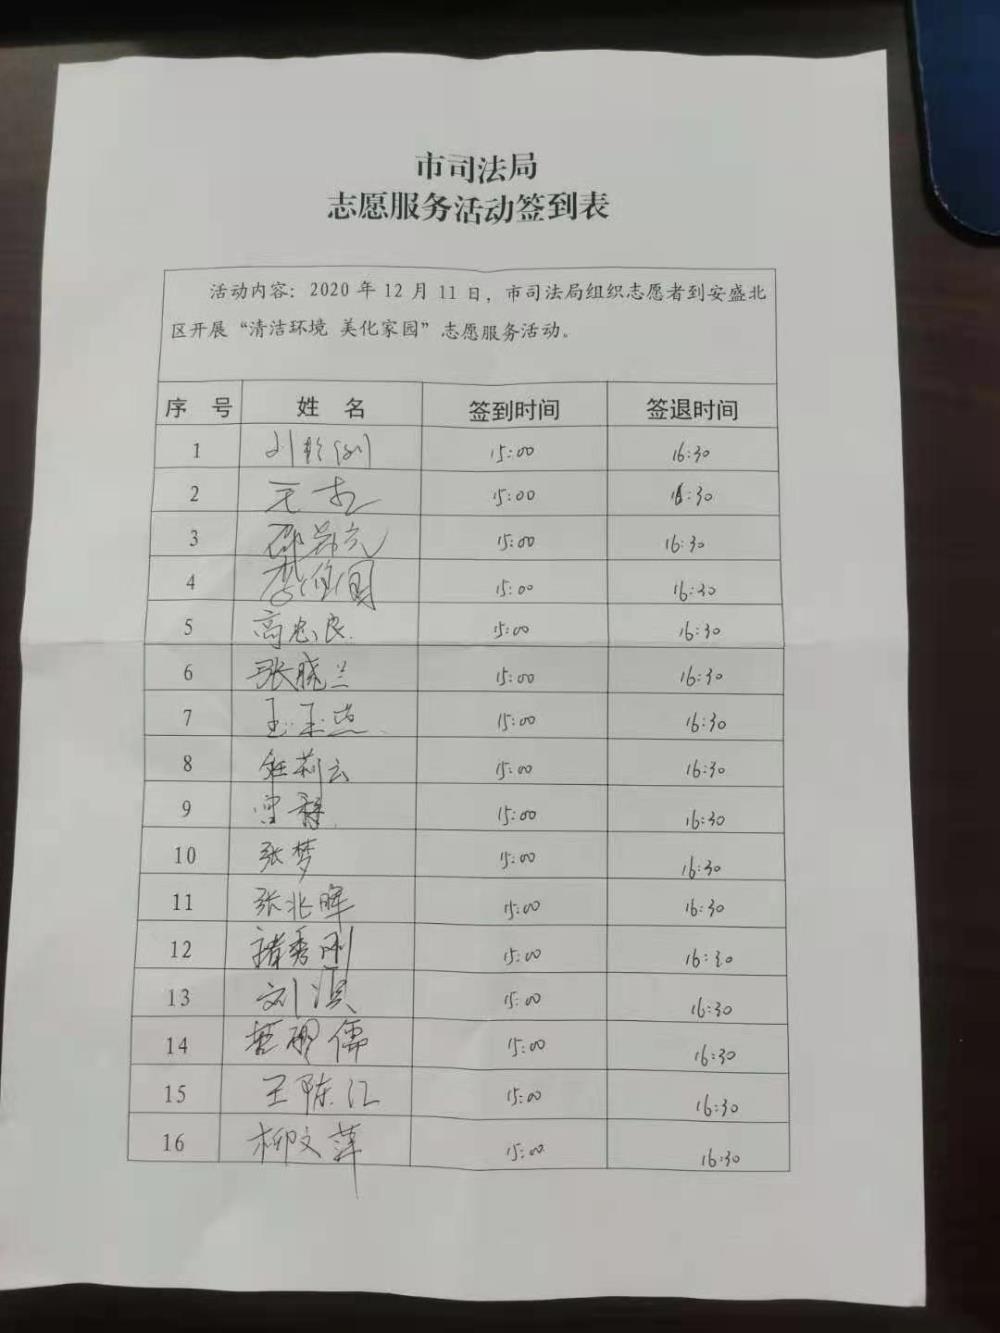 市司法局
志愿服务活动签到表
活动内容：2020年12月11日，市司法局组织志愿者到安盛北
区开展“清洁环境 美化家园”志愿服务活动。
序 号 姓 名 签到时间 签退时间
1 15:00 16:30
2 15:00 16:30
3 15:00 16:30
4 15:00 16:30
5 高忠良 15:00 16:30
6 张晓兰 15:00 16:30
7 15:00 16:30
8 任莉云 15:00 16:30
9 15:00 16:30
10 张梦 15:00 16:30
11 张兆晖 15:00 16:30
12 褚秀刚 15:00 16:30
13 刘淇 15:00 16:30
14 15:00 16:30
15 王陈江 15:00 16:30
16 柳文萍 15:00 16:30